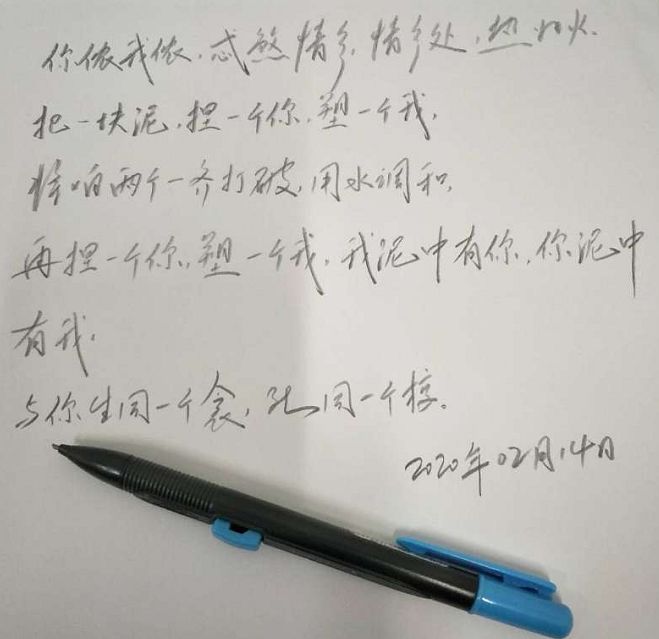 你侬我侬，忒煞情多，情多处，热如火。
把一块泥，捏一个你，塑一个我，
将咱两个一齐打破，用水调和，
再捏一个你，塑一个我，我泥中有你，你泥中
有我。
与你生同一个衾，死同一个椁。
2020年02月14日